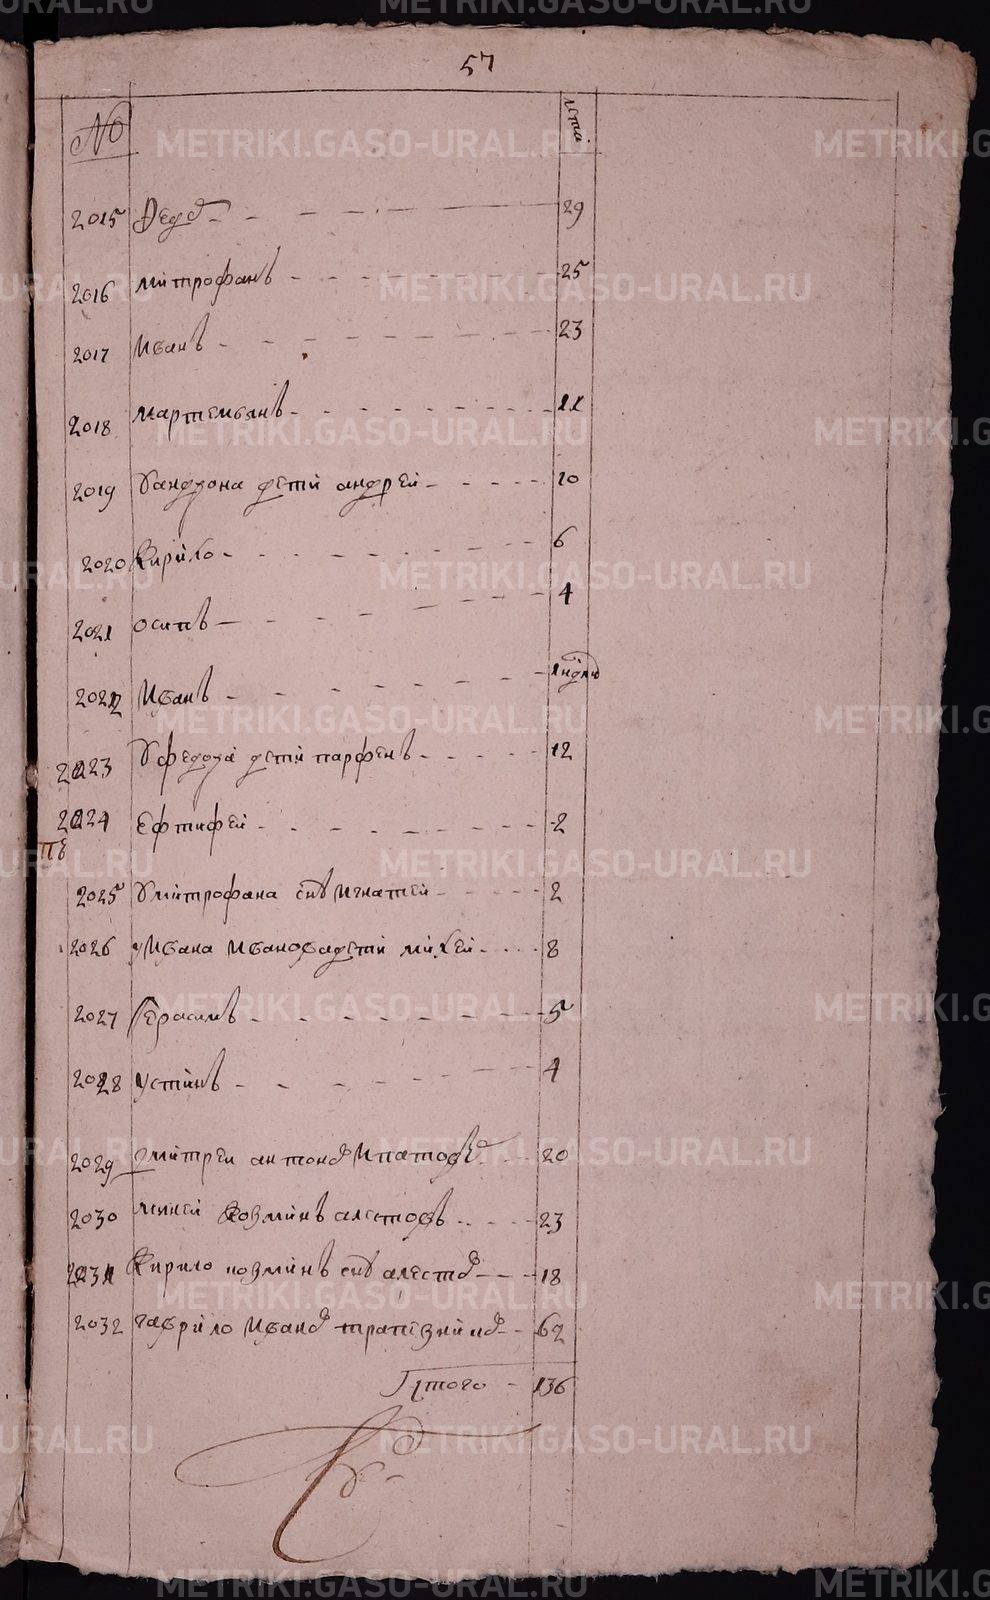 57
№ лета
2015 Федо 29
2016 митрофанъ 25
2017 Иванъ 23
2018 мартемьянъ 11
2019 дети андрей 10
2020 Кирило 6
2021 осипъ 4
2022 Иванъ
2023 У федота дети парфенъ 12
2024 Ефтифей 2
2025 У митрофана снъ игнатей 2
2026 у Ивана Иванова дети михей 8
2027 Герасимъ 5
2028 устинъ 4
2029 дмитреи антоно Ипатовъ 20
2030 миней Козминъ алетовъ 23
2031 Кирило козминъ снъ 18
2032 гаврило Ивано 62
Итого 136
METRIKI.GASO-URAL.RU